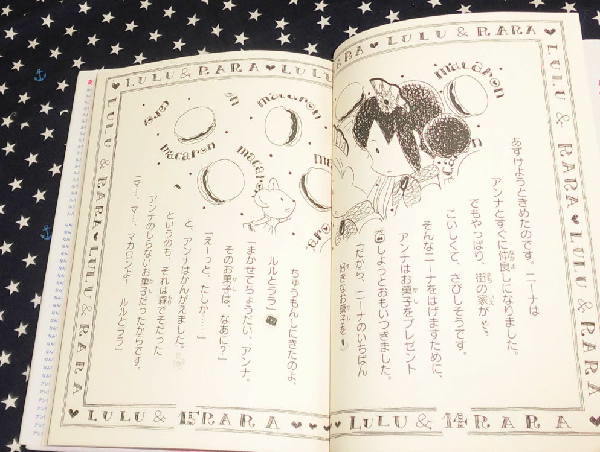 LULU & RARA ♥ LULU & RARA
あずけようときめたのです。ニーナは
アンナとすぐに仲良しになりました。
でもやっぱり、街の家が
こいしくて、さびしそうです。
そんなニーナをはげますために、
アンナはお菓子をプレゼント
しようとおもいつきました。
「だから、ニーナのいちばん
好きなお菓子を
LULU & 14 RARA
LULU & RARA ♥ LULU
macaron
macaron
macaron
macaron
ちゅうもんしにきたのよ、
ルルとララ」
「まかせてちょうだい、アンナ。
そのお菓子は、なあに?」
「えーっと、たしか……」
と、アンナはかんがえました。
というのも、それは森でそだった
アンナのしらないお菓子だったからです。
ルルとララ」
LULU & 15 RARA